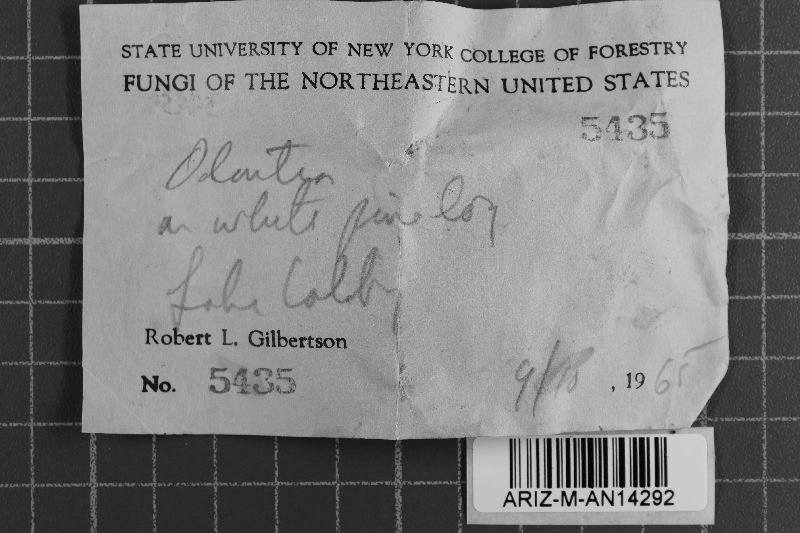 STATE UNIVERSITY OF NEW YORK COLLEGE OF FORESTRY
FUNGI OF THE NORTHEASTERN UNITED STATES
5435
Odontia
on white pine log
Lake Colby
Robert L. Gilbertson
No. 5435
9/18, 1965
ARIZ-M-AN14292